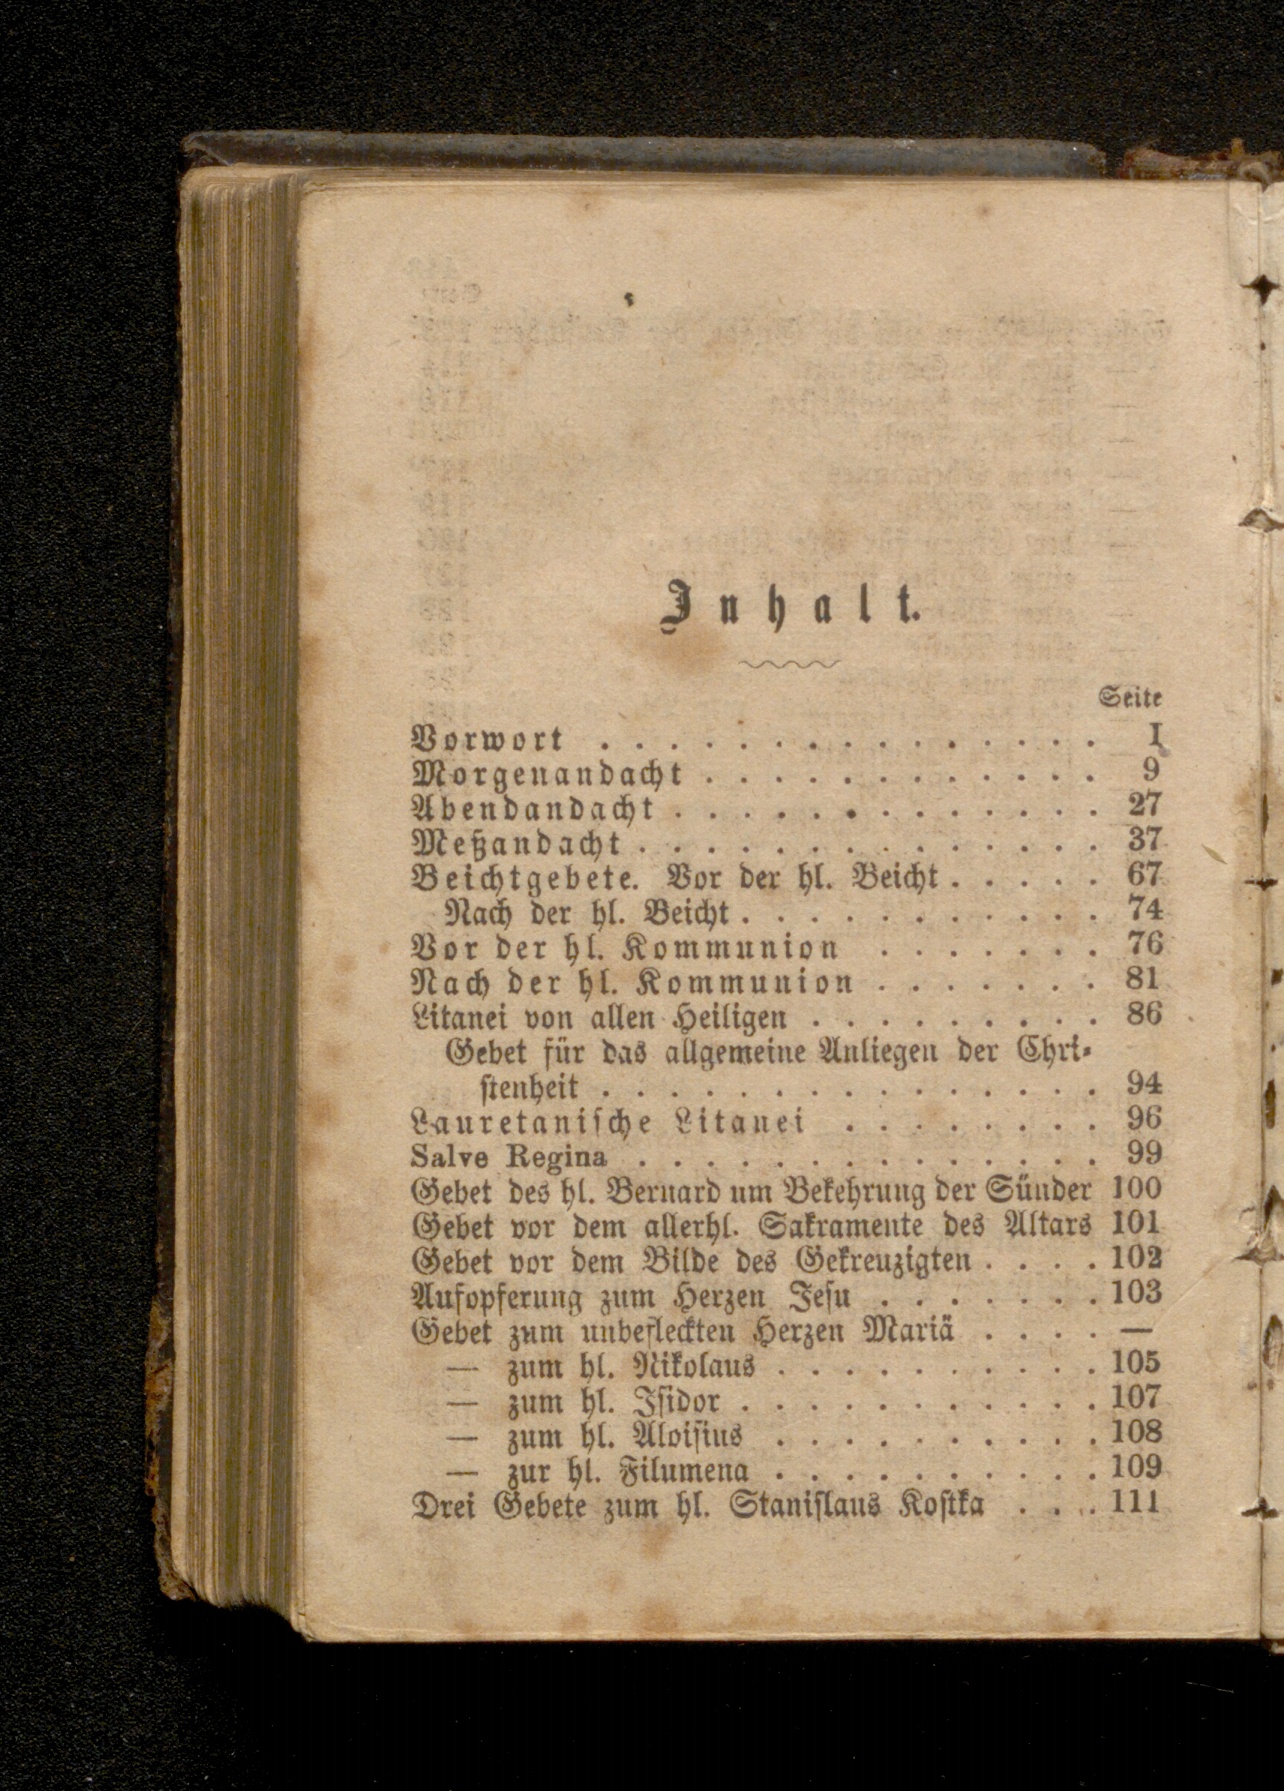 Inhalt.
Seite
Vorwort . . . . . . . . . . . . . . . I
Morgenandacht . . . . . . . . . . . . 9
Abendandacht . . . . . . . . . . . . . 27
Meßandacht . . . . . . . . . . . . . . 37
Beichtgebete. Vor der hl. Beicht . . . . . 67
Nach der hl. Beicht . . . . . . . . . . . 74
Vor der hl. Kommunion . . . . . . . 76
Nach der hl. Kommunion . . . . . . . 81
Litanei von allen Heiligen . . . . . . . . . 86
Gebet für das allgemeine Anliegen der Chri-
stenheit . . . . . . . . . . . . . . . 94
Lauretanische Litanei . . . . . . . . 96
Salve Regina . . . . . . . . . . . . . . 99
Gebet des hl. Bernard um Bekehrung der Sünder 100
Gebet vor dem allerhl. Sakramente des Altars 101
Gebet vor dem Bilde des Gekreuzigten . . . . 102
Aufopferung zum Herzen Jesu . . . . . . . 103
Gebet zum unbefleckten Herzen Mariä . . . . —
— zum hl. Nikolaus . . . . . . . . . . 105
— zum hl. Isidor . . . . . . . . . . . 107
— zum hl. Aloisius . . . . . . . . . . 108
— zur hl. Filumena . . . . . . . . . . 109
Drei Gebete zum hl. Stanislaus Kostka . . . 111